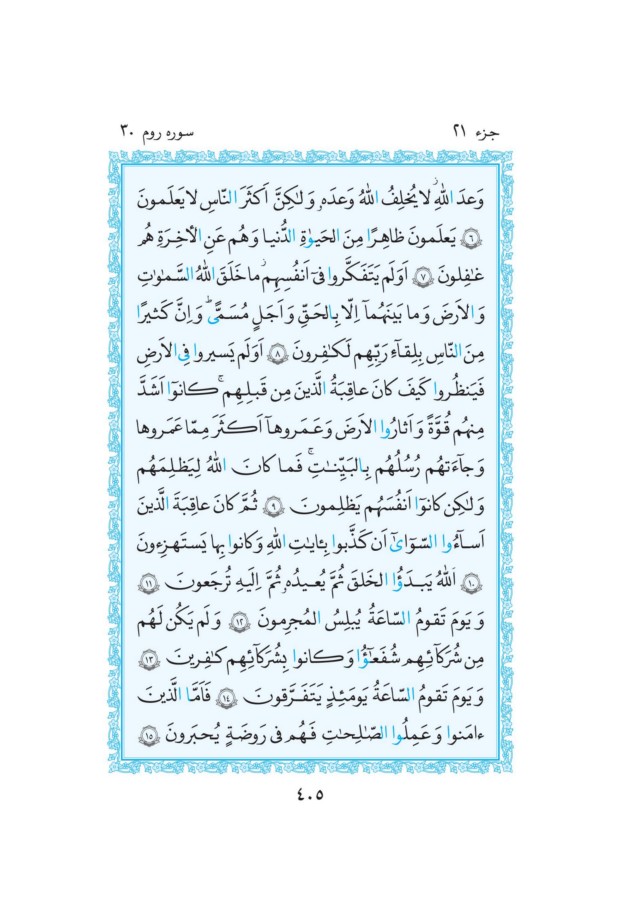 جزء ٢١
سوره روم ٣٠
وَعدَ اللهِ ۖ لا يُخلِفُ اللهُ وَعدَهٗ وَلٰكِنَّ اَكثَرَ النّاسِ لا يَعلَمونَ
﴿٦﴾ يَعلَمونَ ظاهِرًا مِنَ الحَيوٰةِ الدُّنيا وَهُم عَنِ الأخِرَةِ هُم
غٰفِلونَ ﴿٧﴾ اَوَلَم يَتَفَكَّروا فى اَنفُسِهِم ۗ ما خَلَقَ اللهُ السَّمٰوٰتِ
وَالاَرضَ وَما بَينَهُمآ اِلّا بِالحَقِّ وَاَجَلٍ مُسَمًّى ۗ وَاِنَّ كَثيرًا
مِنَ النّاسِ بِلِقآءِ رَبِّهِم لَكٰفِرونَ ﴿٨﴾ اَوَلَم يَسيروا فِى الاَرضِ
فَيَنظُروا كَيفَ كانَ عاقِبَةُ الَّذينَ مِن قَبلِهِم ۚ كانوٓا اَشَدَّ
مِنهُم قُوَّةً وَاَثارُوا الاَرضَ وَعَمَروهآ اَكثَرَ مِمّا عَمَروها
وَجآءَتهُم رُسُلُهُم بِالبَيِّنٰتِ ۚ فَما كانَ اللهُ لِيَظلِمَهُم
وَلٰكِن كانوٓا اَنفُسَهُم يَظلِمونَ ﴿٩﴾ ثُمَّ كانَ عاقِبَةَ الَّذينَ
اَسآءُوا السّوٓاىٰٓ اَن كَذَّبوا بِـٔايٰتِ اللهِ وَكانوا بِها يَستَهزِءونَ
﴿١٠﴾ اَللهُ يَبدَؤُا الخَلقَ ثُمَّ يُعيدُهٗ ثُمَّ اِلَيهِ تُرجَعونَ ﴿١١﴾
وَيَومَ تَقومُ السّاعَةُ يُبلِسُ المُجرِمونَ ﴿١٢﴾ وَلَم يَكُن لَهُم
مِن شُرَكآئِهِم شُفَعٰٓؤُا وَكانوا بِشُرَكآئِهِم كٰفِرينَ ﴿١٣﴾
وَيَومَ تَقومُ السّاعَةُ يَومَئِذٍ يَتَفَرَّقونَ ﴿١٤﴾ فَاَمَّا الَّذينَ
ءامَنوا وَعَمِلُوا الصّٰلِحٰتِ فَهُم فى رَوضَةٍ يُحبَرونَ ﴿١٥﴾
٤٠٥